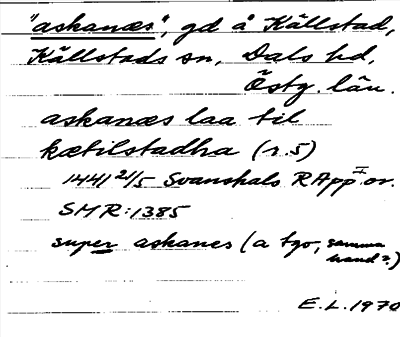 "askanæs", gd å Källstad,
Källstads sn, Dals hd,
Östg. län.
askanæs laa til
kætilstadha (r.5)
1441 21/5 Svanshals RApp II or.
SMR:1385
super askanes (a tgo, samma
hand?)
E.L.1970